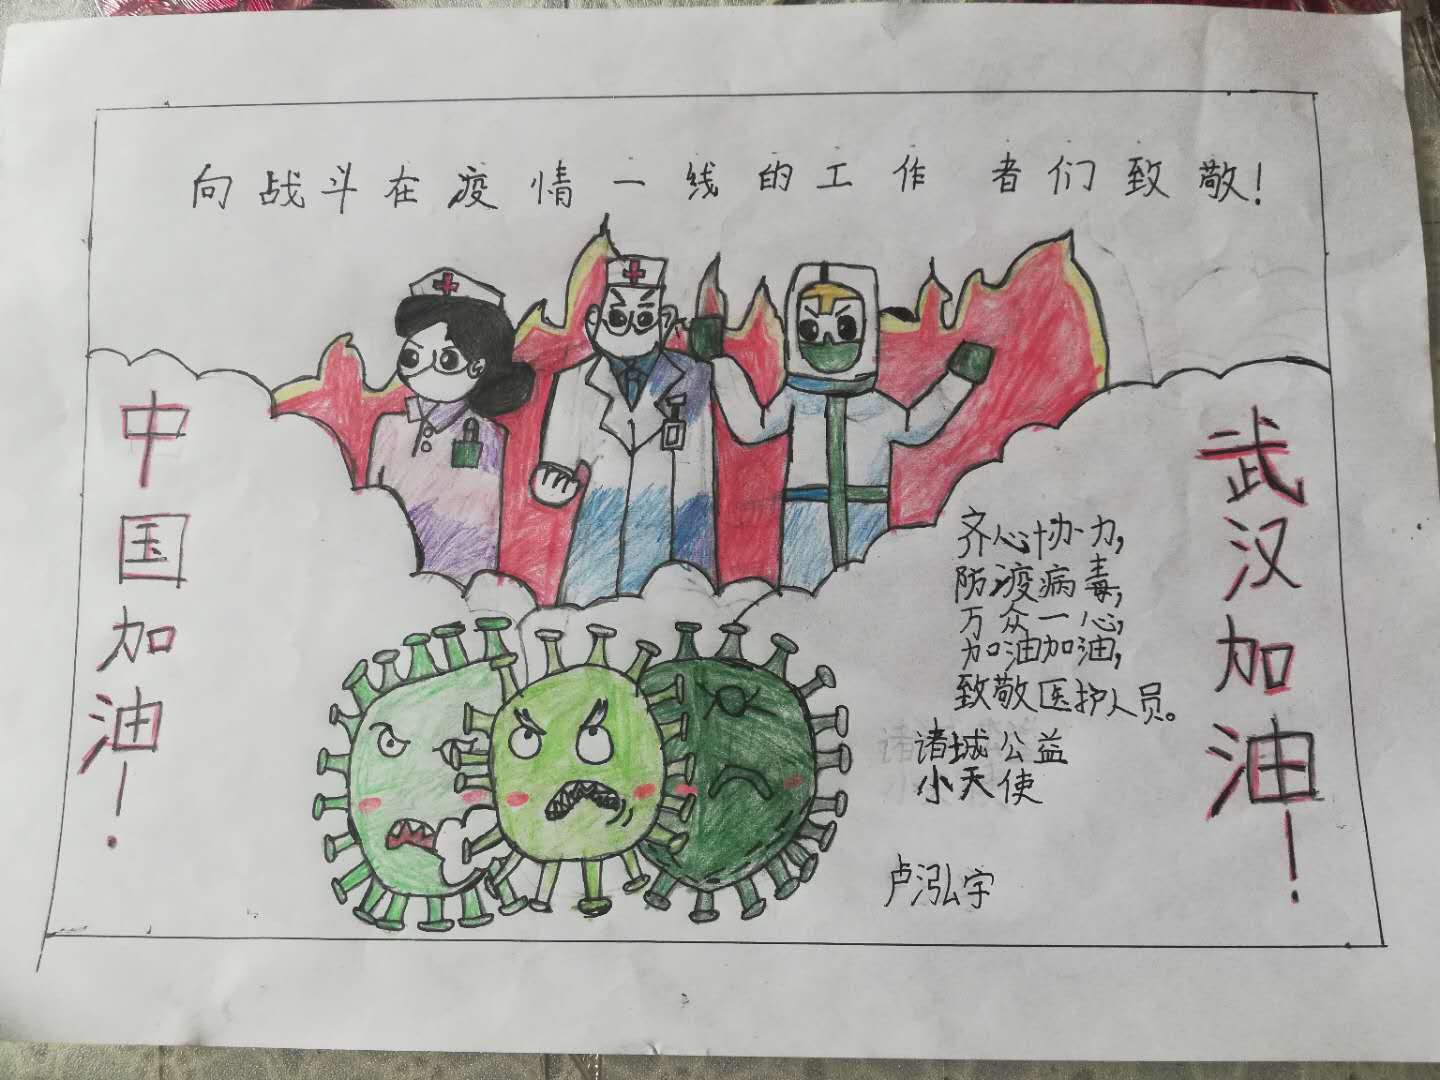 向战斗在疫情一线的工作者们致敬！
中国加油！
武汉加油！
齐心协力，
防疫病毒，
万众一心，
加油加油，
致敬医护人员。
诸城公益
小天使
卢泓宇